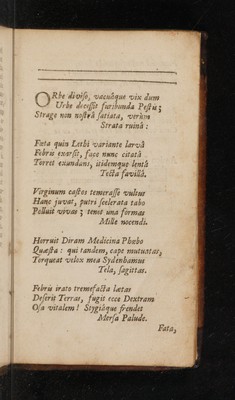 ORbe diviso, vacuâque vix dum
Urbe decessit furibunda Pestis;
Strage non nostrâ satiata, verùm
Strata ruinâ:
Fæta quin Lethi variante larvâ
Febris exorsit, face nunc citatâ
Torret exundans, itidemque lentâ
Testa favillâ.
Virginum castos temerasse vultus
Hanc juvat, putri scelerata tabo
Polluit vivas; tenet una formas
Mille nocendi.
Horruit Diram Medicina Phœbo
Quæsta: qui tandem, cape mutuatas,
Torqueat velox mea Sydenhamus
Tela, sagittas.
Febris irato tremefacta lætas
Deserit Terras, fugit ecce Dextram
Osa vitalem! Stygiâque frendet
Mersa Palude.
Fata,